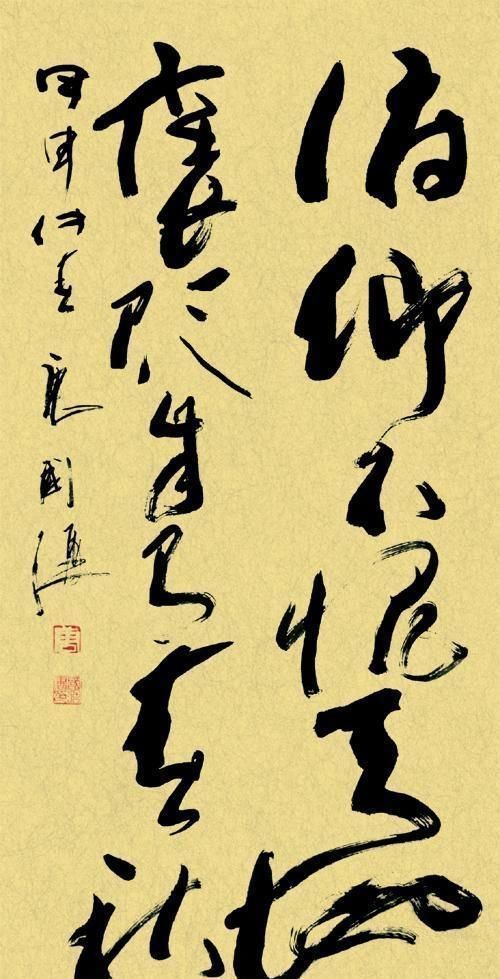 俯仰不愧天地
褒貶自有春秋
甲申仲春